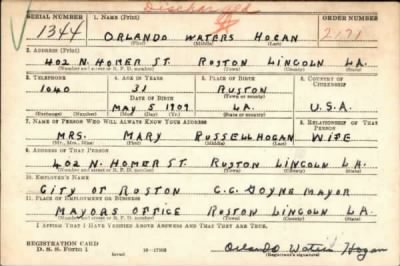 Discharged
SERIAL NUMBER 1. NAME (Print) ORDER NUMBER
1344 ORLANDO WATERS HOGAN 2171
(First) (Middle) (Last)
2. ADDRESS (Print)
402 N. HOMER ST. RUSTON LINCOLN LA.
(Number and street or R. F. D. number) (Town) (County) (State)
3. TELEPHONE 4. AGE IN YEARS 5. PLACE OF BIRTH 6. COUNTRY OF CITIZENSHIP
1040 31 RUSTON
DATE OF BIRTH (Town or county)
MAY 5 1909 LA. U.S.A.
(Mo.) (Day) (Yr.) (State or country)
7. NAME OF PERSON WHO WILL ALWAYS KNOW YOUR ADDRESS 8. RELATIONSHIP OF THAT PERSON
MRS. MARY RUSSELL HOGAN WIFE
(Mr., Mrs., Miss) (First) (Middle) (Last)
9. ADDRESS OF THAT PERSON
402 N. HOMER ST. RUSTON LINCOLN LA.
(Number and street or R. F. D. number) (Town) (County) (State)
10. EMPLOYER'S NAME
CITY OF RUSTON C.C. GOYNE MAYOR
11. PLACE OF EMPLOYMENT OR BUSINESS
MAYORS OFFICE RUSTON LINCOLN LA.
(Number and street or R. F. D. number) (Town) (County) (State)
I AFFIRM THAT I HAVE VERIFIED ABOVE ANSWERS AND THAT THEY ARE TRUE.
REGISTRATION CARD
D. S. S. Form 1 Orlando Waters Hogan
(Registrant's signature)